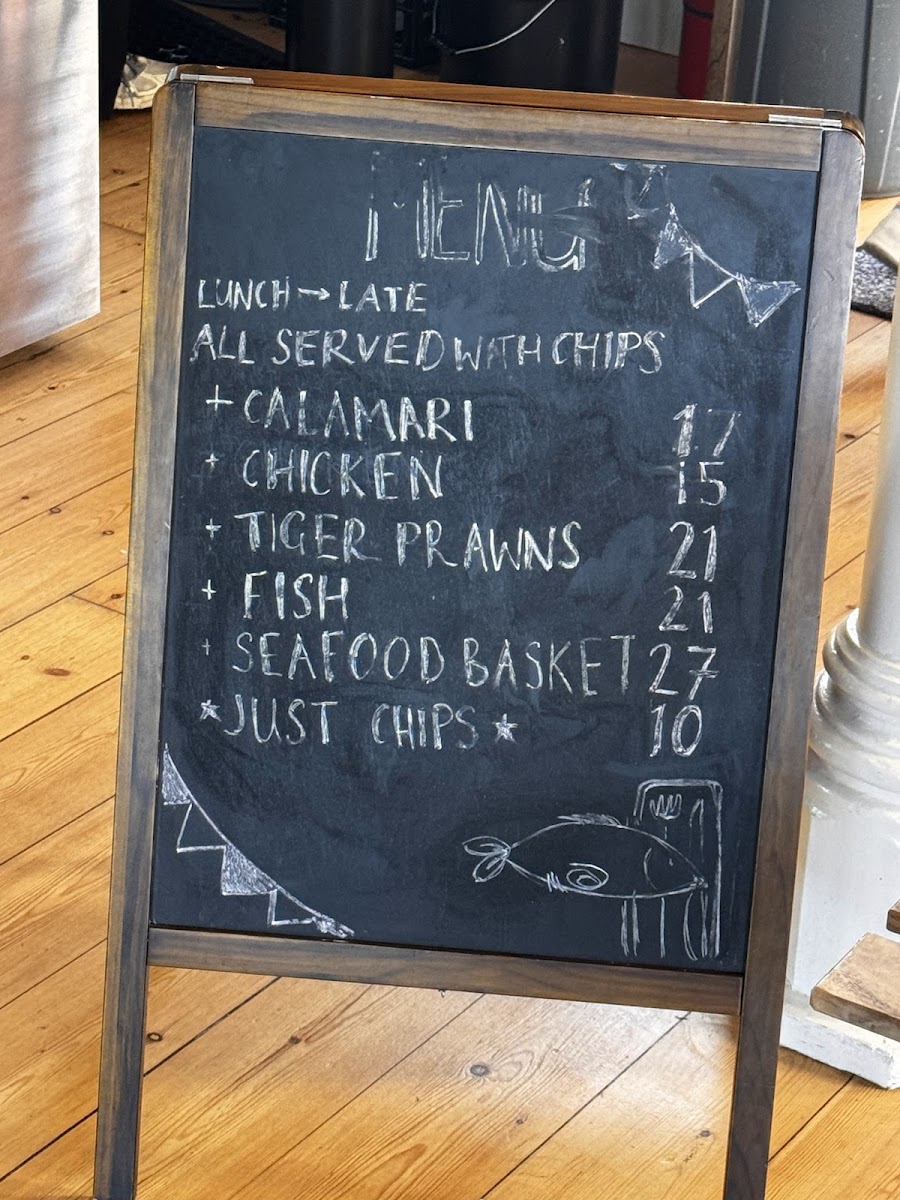 MENU
LUNCH → LATE
ALL SERVED WITH CHIPS
+ CALAMARI 17
+ CHICKEN 15
+ TIGER PRAWNS 21
+ FISH 21
+ SEAFOOD BASKET 27
* JUST CHIPS * 10